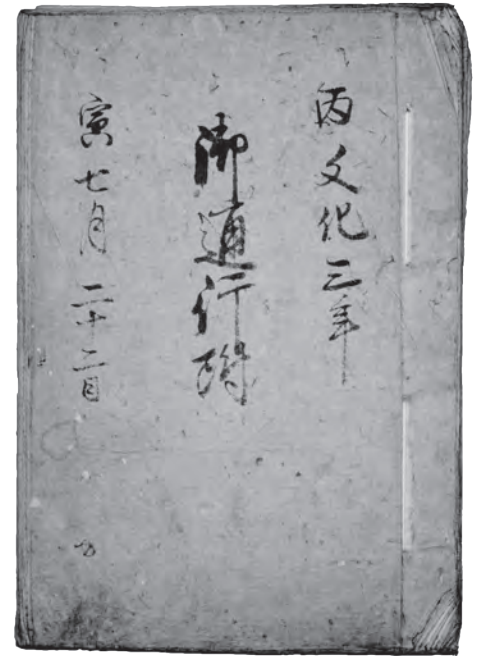 丙文化三年
御通行
寅七月二十二日